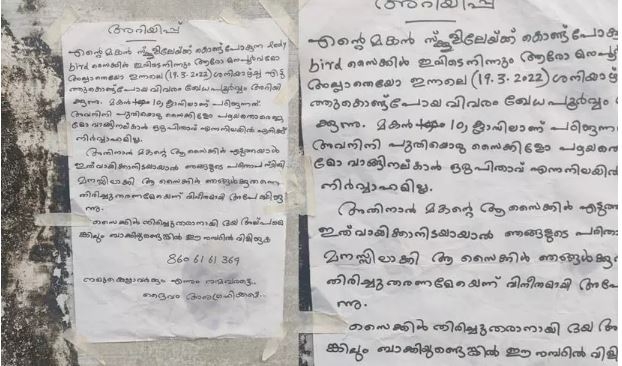 അറിയിപ്പ്
എന്റെ മകൻ സ്കൂളിലേയ്ക്ക് കൊണ്ടുപോകുന്ന lady
bird സൈക്കിൾ ഇവിടെനിന്നും ആരോ മനപ്പൂർവമോ
അല്ലാതെയോ ഇന്നലെ (19.3.2022) ശനിയാഴ്ച്ച എടു
ത്തുകൊണ്ടുപോയ വിവരം ഖേധപൂർവ്വം അറിയി
ക്കുന്നു. മകൻ 10-ാം ക്ലാസിലാണ് പഠിക്കുന്നത്
അവനിനി പുതിയൊരു സൈക്കിളോ പഴയതൊരെണ്ണ
മോ വാങ്ങിനല്കാൻ ഒരുപിതാവ് എന്നനിലയിൽ എനിക്ക്
നിർവ്വാഹമില്ല.
അതിനാൽ മകന്റെ ആ സൈക്കിൾ എടുത്തയാൾ
ഇത് വായിക്കാനിടയായാൽ ഞങ്ങളുടെ പരിതാപസ്ഥിതി
മനസ്സിലാക്കി ആ സൈക്കിൾ ഞങ്ങൾക്കുതന്നെ
തിരിച്ചുതരണമേയെന്ന് വിനീതമായി അപേക്ഷിക്കു
ന്നു.
സൈക്കിൾ തിരിച്ചുതരാനായി ദയ അല്പമെ
ങ്കിലും ബാക്കിയുണ്ടെങ്കിൽ ഈ നമ്പറിൽ വിളിക്കുക
860 61 61 369
നല്ലതുമാത്രം എന്നും നന്മവരട്ടെ..
ദൈവം അനുഗ്രഹിക്കട്ടെ..
അറിയിപ്പ്
എന്റെ മകൻ സ്കൂളിലേയ്ക്ക് കൊണ്ടുപോകു
bird സൈക്കിൾ ഇവിടെനിന്നും ആരോ മനപ്പൂർ
അല്ലാതെയോ ഇന്നലെ (19.3.2022) ശനിയാഴ്ച്ച
ത്തുകൊണ്ടുപോയ വിവരം ഖേധപൂർവ്വം
ക്കുന്നു. മകൻ 10-ാം ക്ലാസിലാണ് പഠിക്കുന്ന
അവനിനി പുതിയൊരു സൈക്കിളോ പഴയതൊ
മോ വാങ്ങിനല്കാൻ ഒരുപിതാവ് എന്നനിലയിൽ
നിർവ്വാഹമില്ല.
അതിനാൽ മകന്റെ ആ സൈക്കിൾ എടുത്ത
ഇത് വായിക്കാനിടയായാൽ ഞങ്ങളുടെ പരിതാ
മനസ്സിലാക്കി ആ സൈക്കിൾ ഞങ്ങൾക്കു
തിരിച്ചുതരണമേയെന്ന് വിനീതമായി അപേ
ന്നു.
സൈക്കിൾ തിരിച്ചുതരാനായി ദയ അ
ങ്കിലും ബാക്കിയുണ്ടെങ്കിൽ ഈ നമ്പറിൽ വിളി